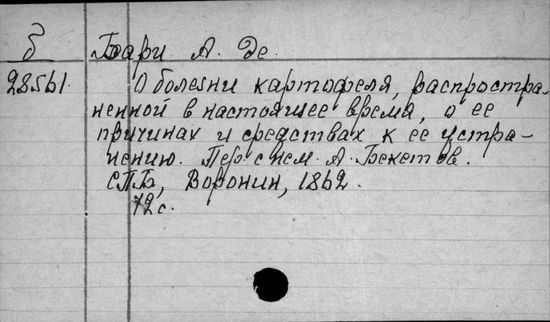 б Бари А. Де.
28561. О болезни картофеля, распростра-
ненной в настоящее время, о ее
причинах и средствах к ее устра-
нению. Пер. с нем. А. Бекетов.
СПБ, Воронин, 1862.
72 с.